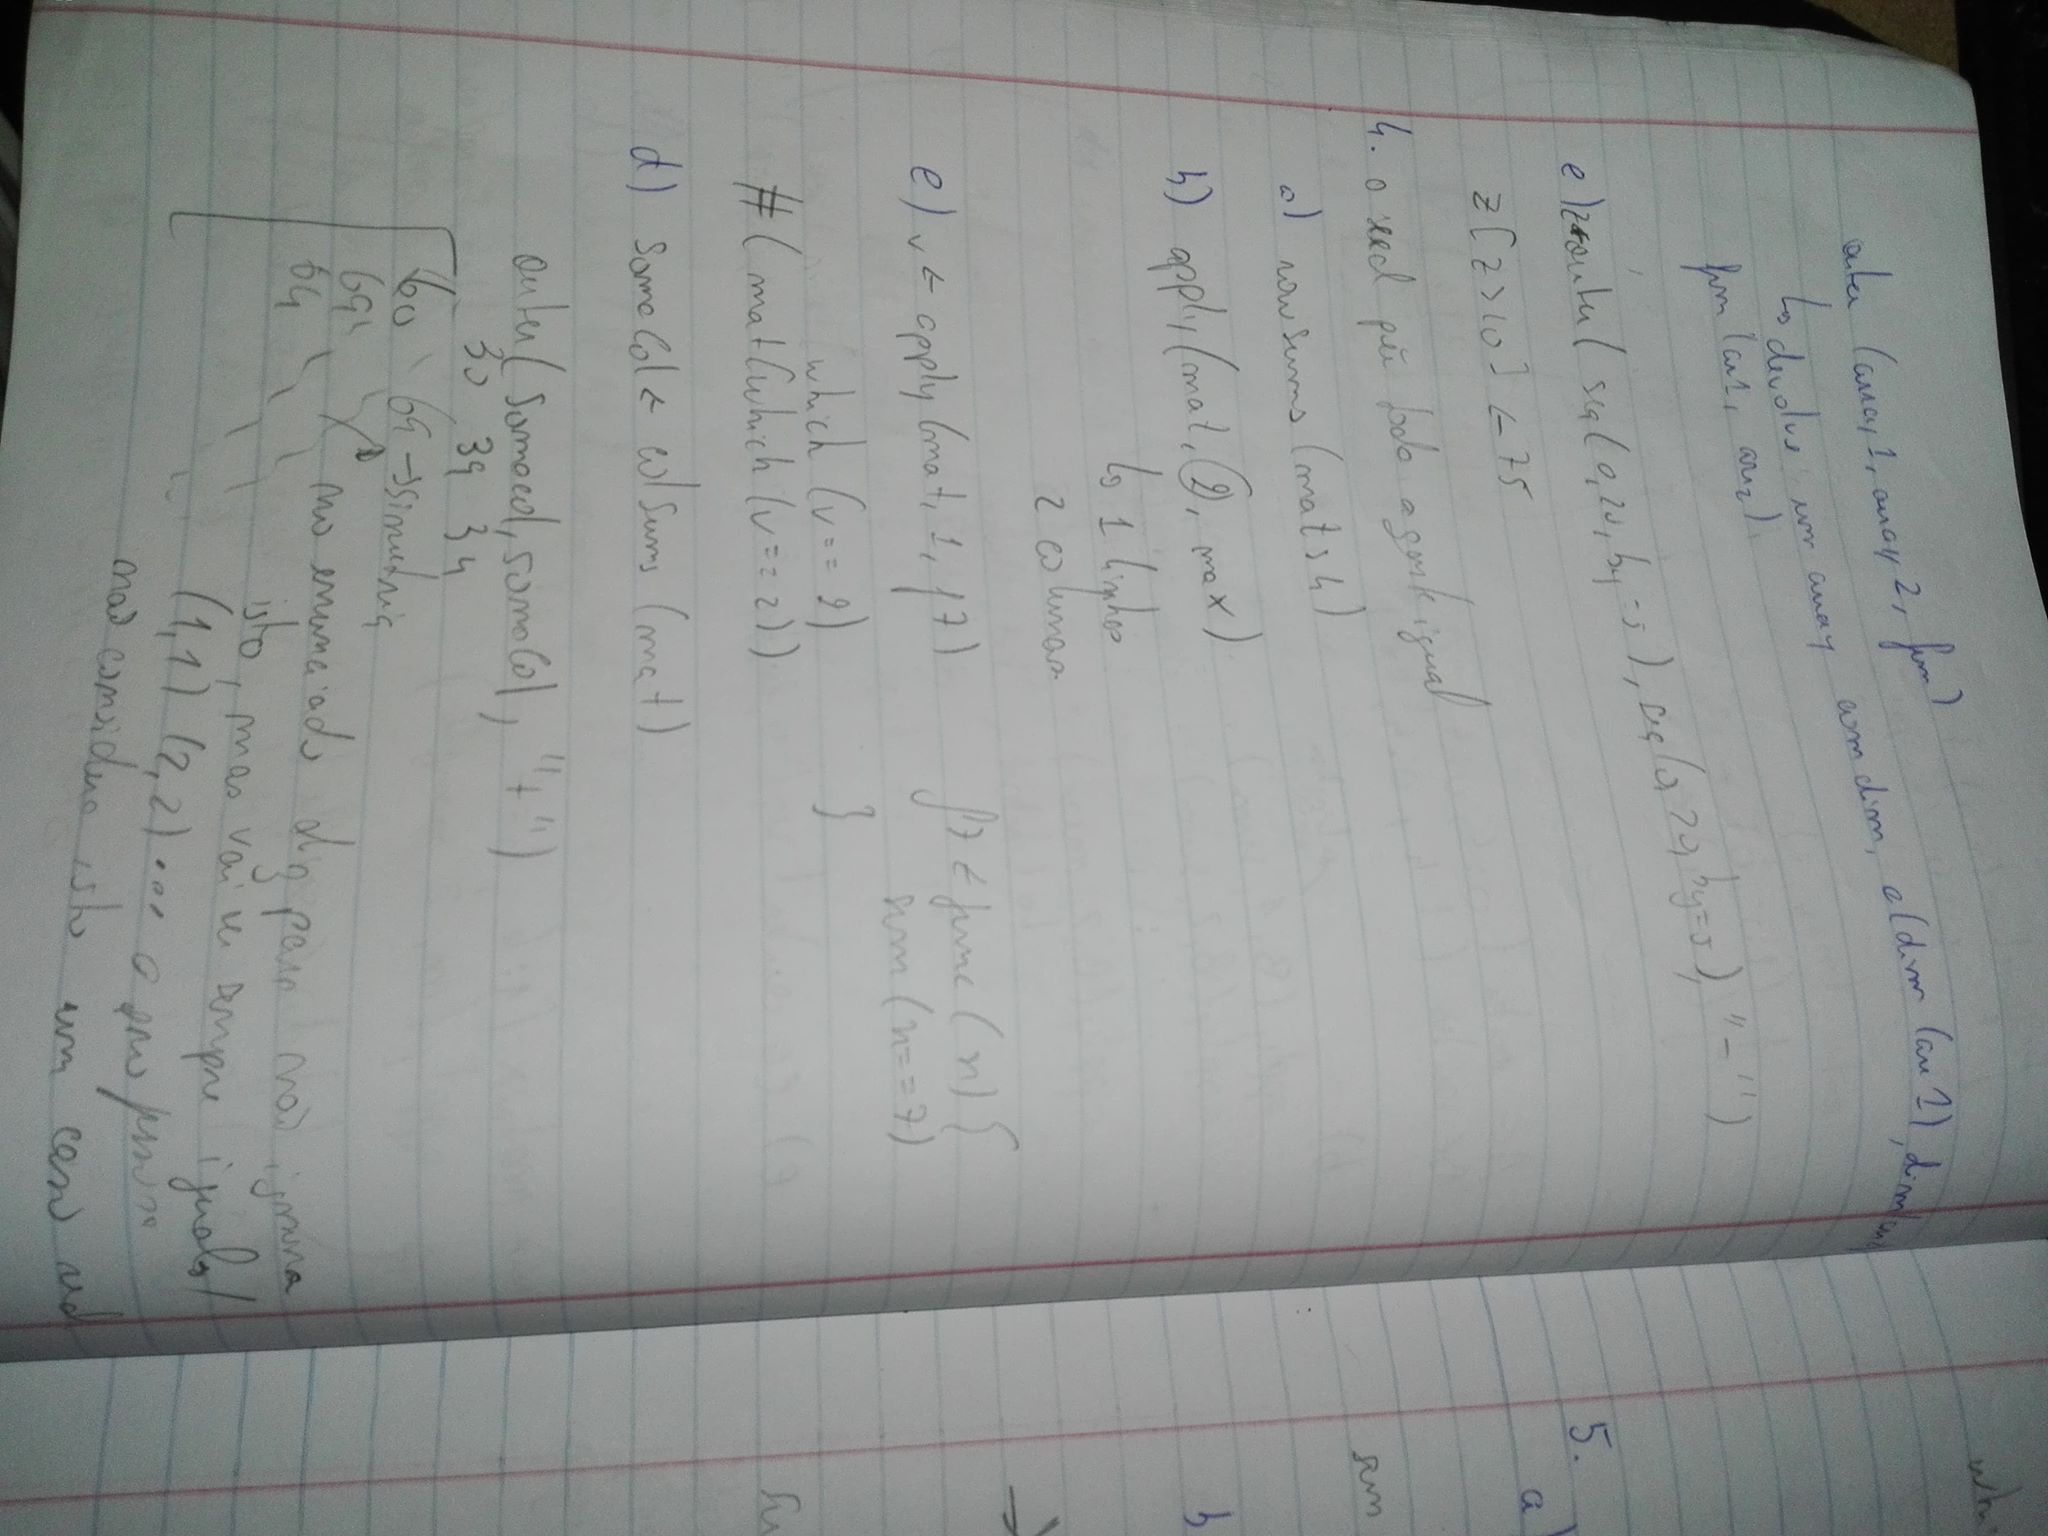 outer (array 1, array 2, fun)
↳ devolve um array com dim, c(dim (arr 1), dim(arr2
fun (ar1, arr2).
e) z←outer( seq(0,20, by=5), seq(0,20, by=5), "-")
z[z>10] ← 75
4. o seed põe todo a gente igual
a) rowsums (mat>4)
b) apply(mat, 2, max)
↳ 1 linhas
2 colunas
c) v← apply(mat, 1, f7)
f7 ← func (n) {
sum (n==7)
}
which (v==2)
# ( mat(which (v==2))
d) somaCol ← colSums (mat)
outer( somacol, somaCol, "+")
30 39 34
60 69 → simetria
69
64
no enunciado diz para não ignorar
isto, mas vai ser sempre iguais/
(1,1) (2,2) ... a professora
não considera isto um caso
5.
a)
sum
b
→